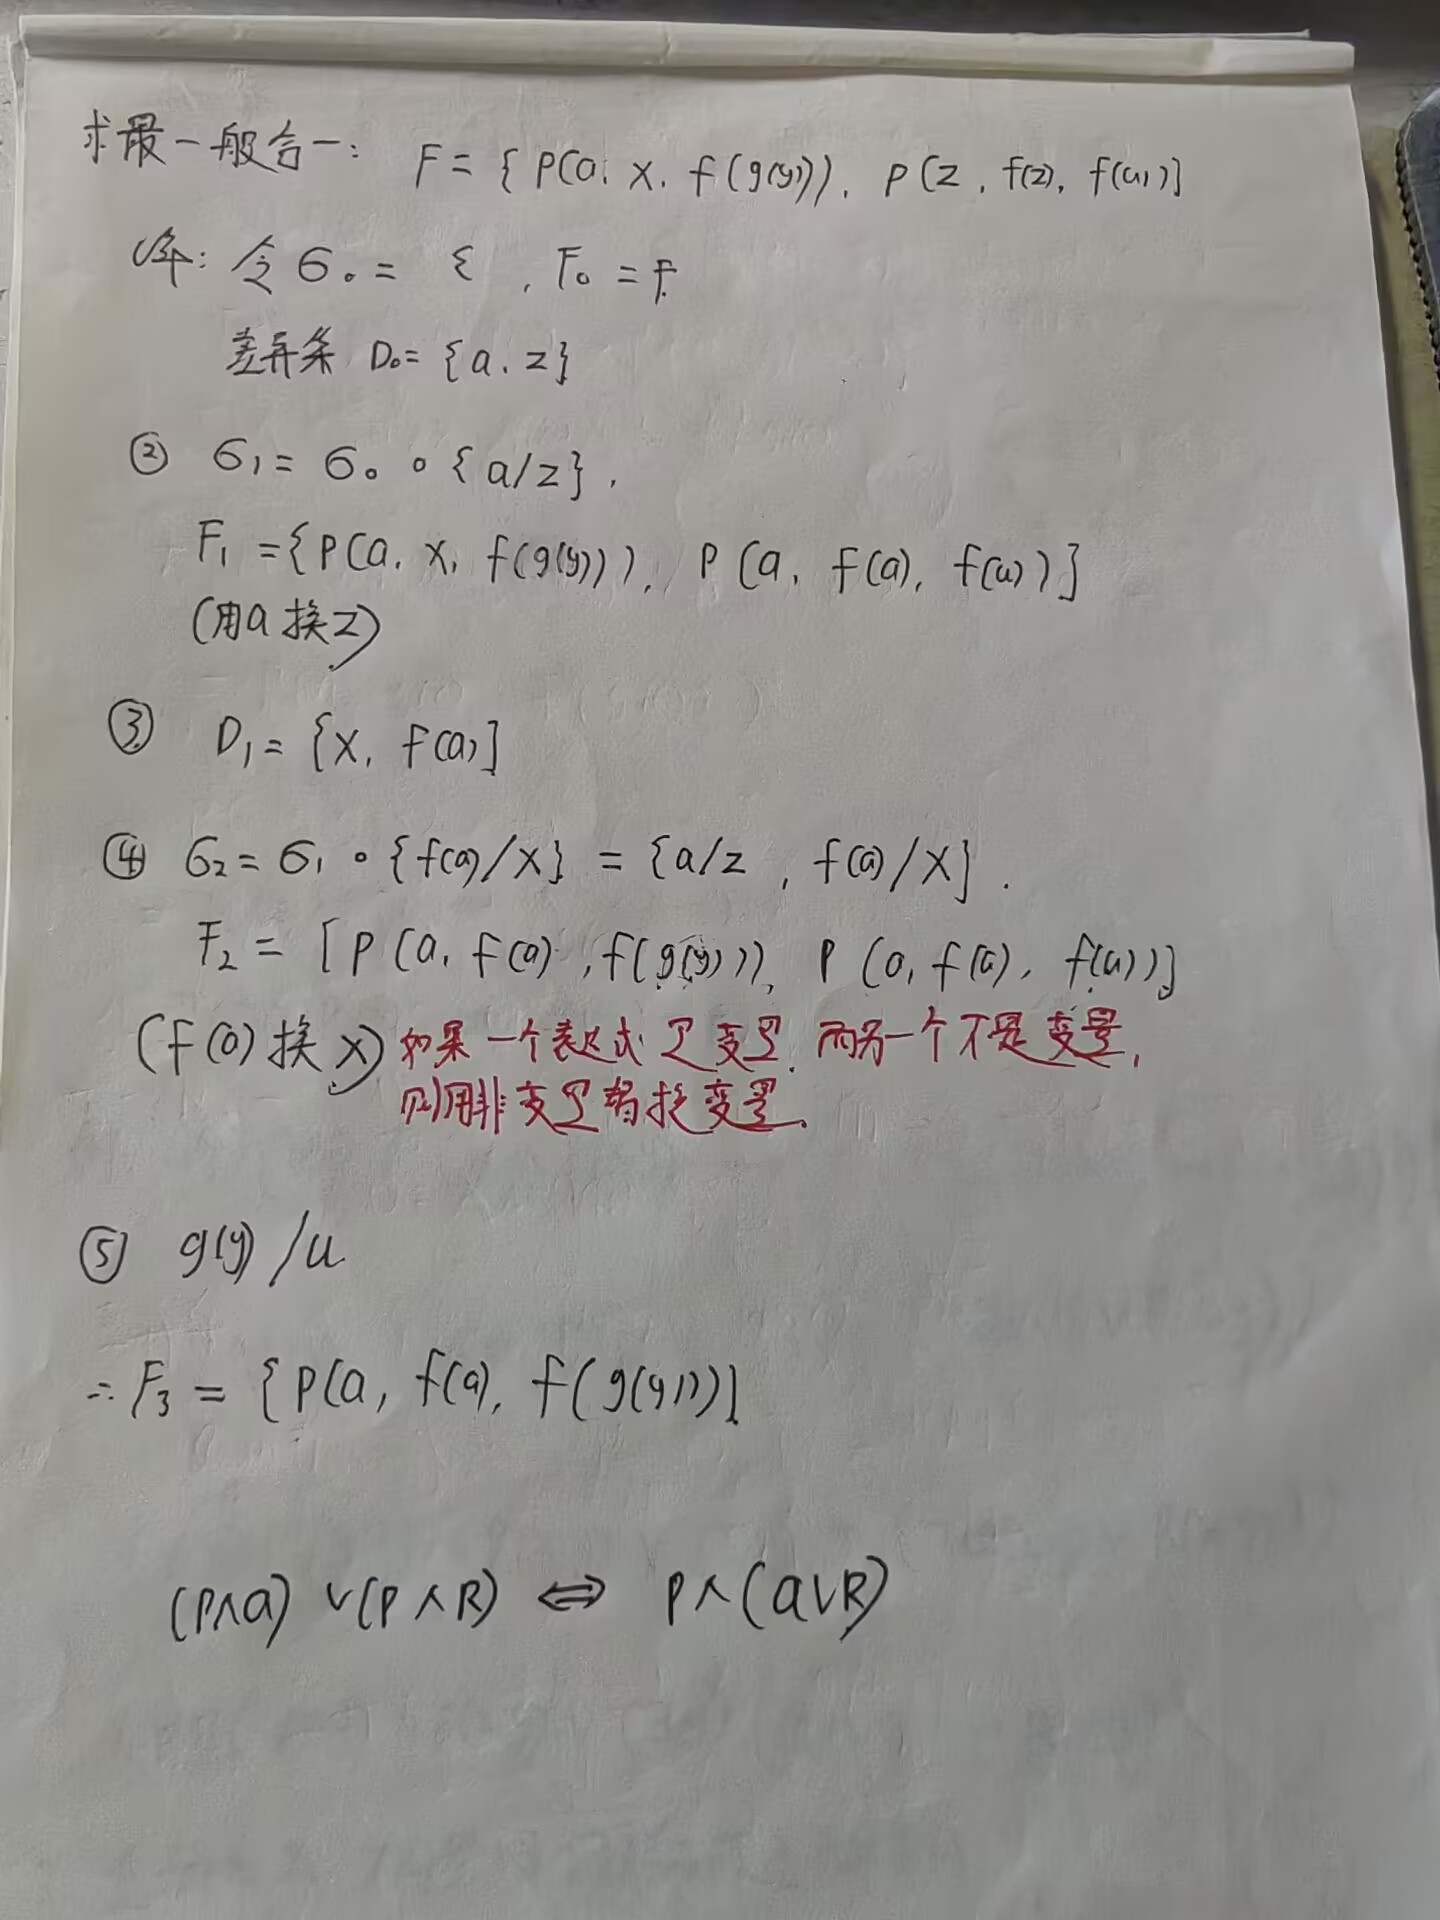 求最一般合一: F = { P(a, x, f(g(y))), P(z, f(z), f(u))}
解: 令 σ₀ = ε , F₀ = F
差异集 D₀ = {a, z}
② σ₁ = σ₀ ∘ {a/z}.
F₁ = {P(a, x, f(g(y))), P(a, f(a), f(u))}
(用a换z)
③ D₁ = {x, f(a)}
④ σ₂ = σ₁ ∘ {f(a)/x} = {a/z , f(a)/x} .
F₂ = [P(a, f(a), f(g(y))), P(a, f(a), f(u))}
(f(a)换x) 如果一个表达式是变量, 而另一个不是变量,
则用非变量替换变量.
⑤ g(y)/u
∴ F₃ = {P(a, f(a), f(g(y)))}
(P∧Q) ∨ (P∧R) ⇔ P∧(Q∨R)